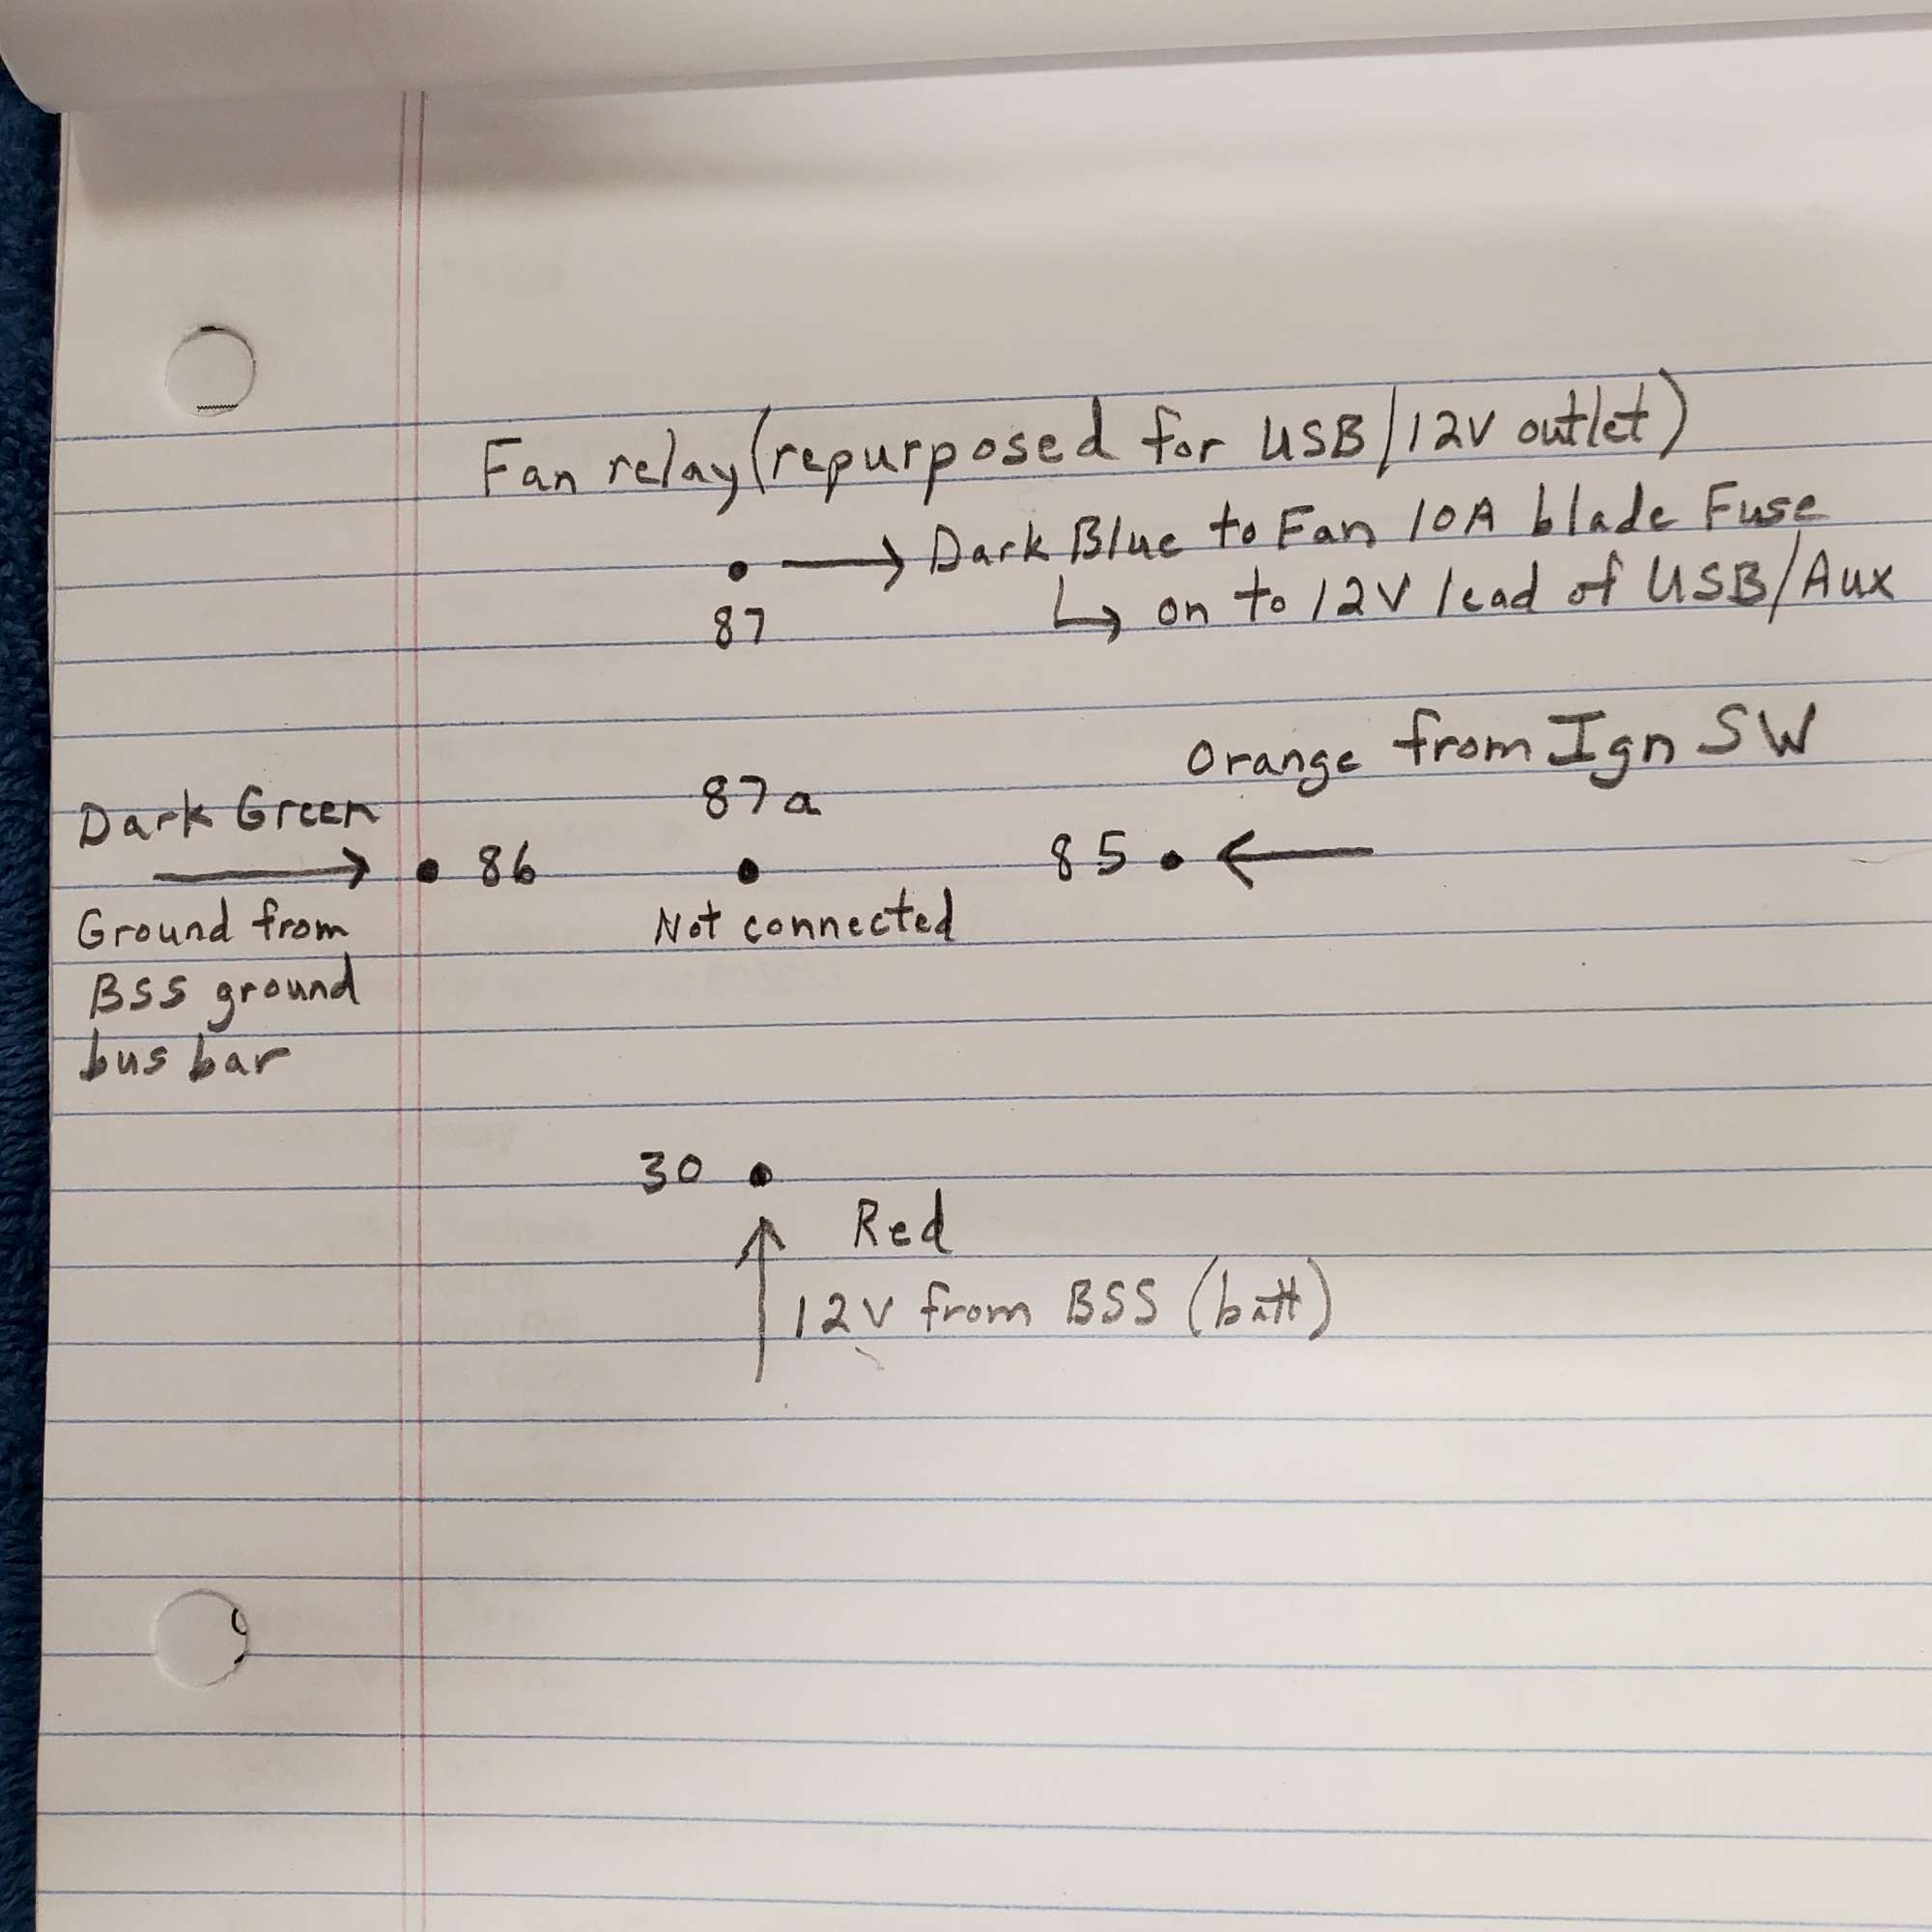 Fan relay (repurposed for USB/12V outlet)
Dark Blue to Fan 10A blade Fuse
87
on to 12V lead of USB/Aux
Orange from Ign SW
Dark Green
87a
86
85
Ground from
Not connected
BSS ground
bus bar
30
Red
12V from BSS (batt)